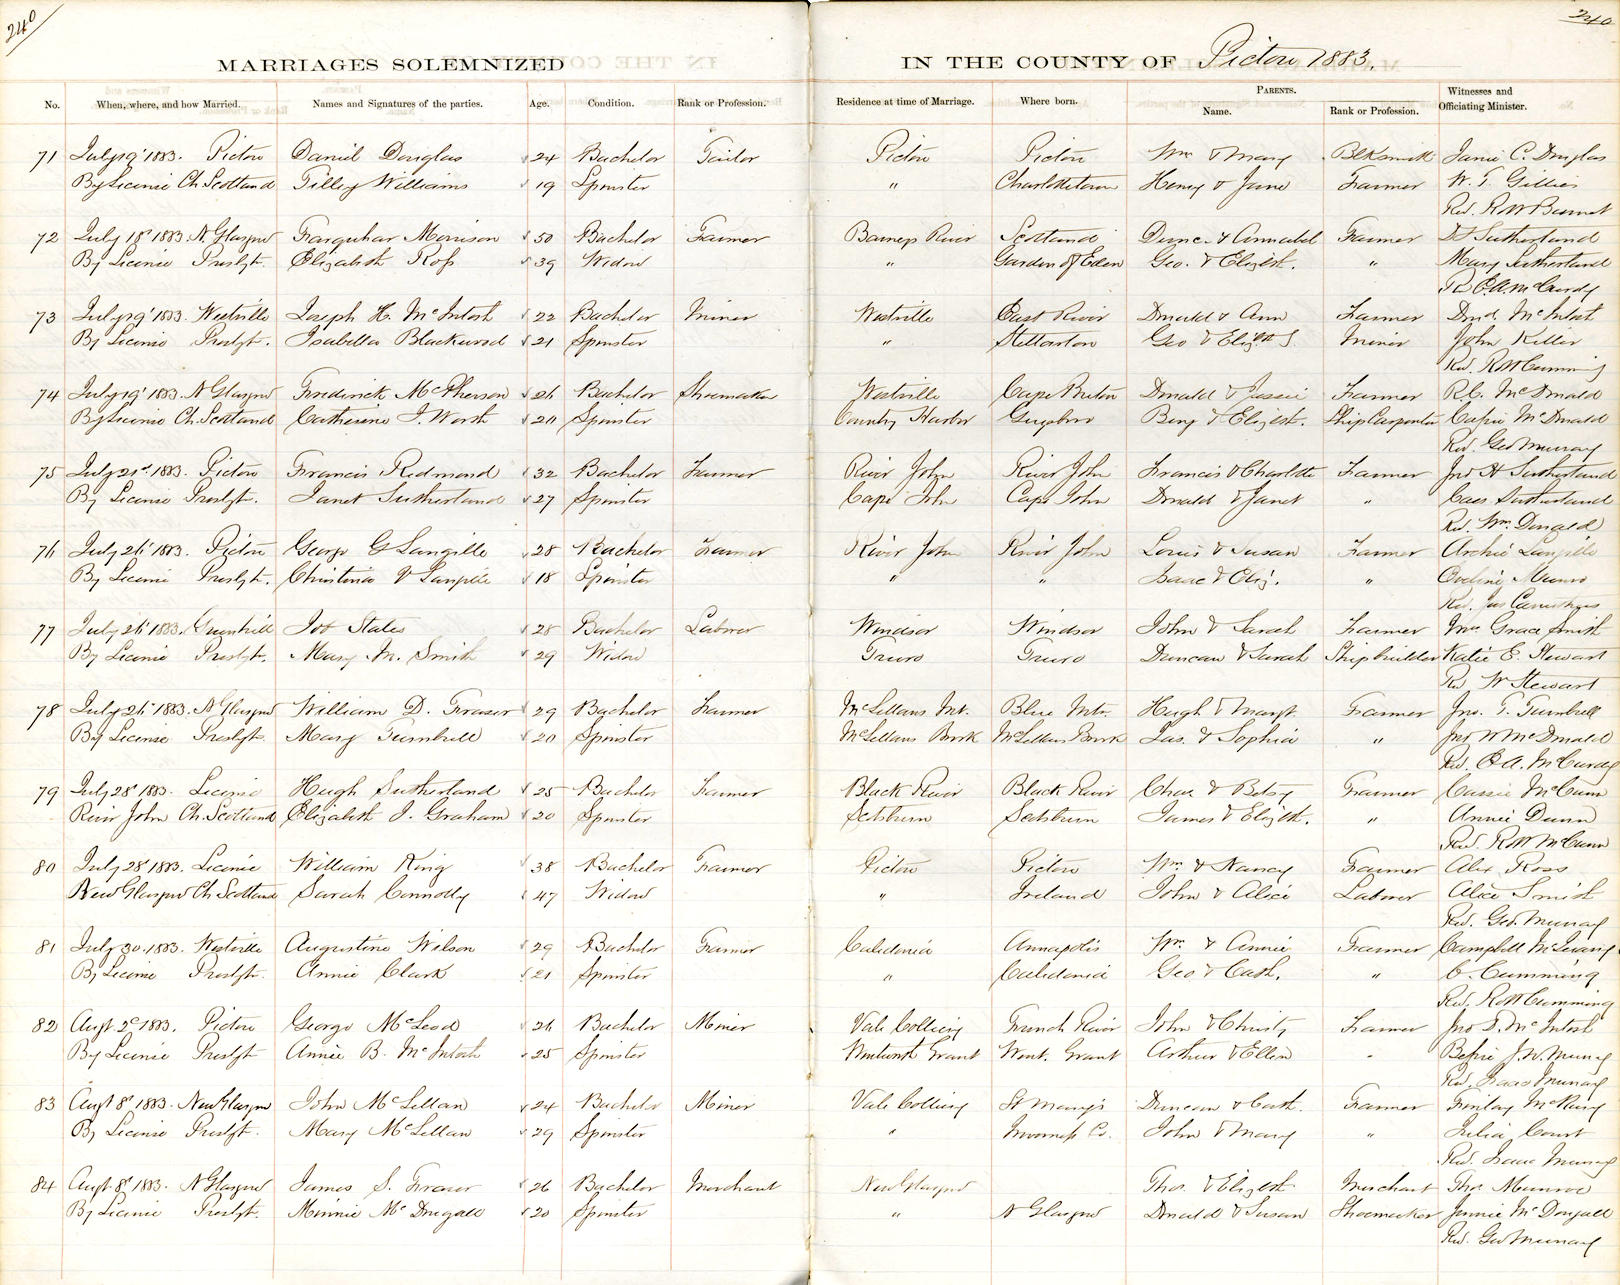 240
240
MARRIAGES SOLEMNIZED IN THE COUNTY OF Pictou 1883.
No. When, where, and how Married. Names and Signatures of the parties. Age. Condition. Rank or Profession. Residence at time of Marriage. Where born. PARENTS. Name. Rank or Profession. Witnesses and Officiating Minister.
71 July 19' 1883. Pictou Daniel Douglas 24 Bachelor Tailor Pictou Pictou Wm & Mary Blksmith Janie C. Douglas
By Licence Ch. Scotland Tilley Williams 19 Spinster " Charlottetown Henry & Jane Farmer W. T. Gillies
Rev. R W Burnet
72 July 18' 1883. N. Glasgow Farquhar Morrison 50 Bachelor Farmer Barneys River Scotland Dunc. & Annabel Farmer Sutherland
By Licence Presbyt. Elizabeth Ross 39 Widow " Garden of Eden Geo. & Elizbth. " Mary Sutherland
Rev. McCurdy
73 July 19' 1883. Westville Joseph H. McIntosh 22 Bachelor Miner Westville East River Donald & Ann Farmer Dond. McIntosh
By Licence Presbyt. Isabella Blackwood 21 Spinster " Stellarton Geo & Elizth S. Miner John Killer
Rev. R W Cumming
74 July 19' 1883. N Glasgow Frederick McPherson 26 Bachelor Shoemaker Westville Cape Breton Donald & Jessie Farmer R. C. McDonald
By Licence Ch. Scotland Catherine J. Worth 20 Spinster Country Harbor Guysboro Benj & Elizbth. Ship Carpenter Cassie McDonald
Rev. Geo Murray
75 July 21st. 1883. Pictou Francis Redmond 32 Bachelor Farmer River John River John Francis & Charlotte Farmer Jno H Sutherland
By License Presbyt. Janet Sutherland 27 Spinster Cape John Cape John Donald & Janet " Sutherland
Rev. Wm. Donald
76 July 26' 1883. Pictou George G Langille 28 Bachelor Farmer River John River John Louis & Susan Farmer Archie Langille
By Licence Presbyt. Christina V Langille 18 Spinster " " Isaac & Eliz. " Munro
Rev. Jas Carruthers
77 July 26' 1883. Greenhill Job States 28 Bachelor Laborer Windsor Windsor John & Sarah Farmer Grace Smith
By Licence Presbyt. Mary M. Smith 29 Widow Truro Truro Duncan & Sarah Shipbuilder Katie E. Stewart
Rev W Stewart
78 July 26' 1883. N Glasgow William D. Fraser 29 Bachelor Farmer McLellans Mt. Blue Mtn. Hugh & Margt. Farmer Jno. T. Turnbull
By License Presbyt. Mary Turnbull 20 Spinster McLellans Brook McLellans Brook Jas. & Sophia " Jno W McDonald
Rev. A. McCurdy
79 July 28' 1883. Licence Hugh Sutherland 25 Bachelor Farmer Black River Black River Chas & Betsy Farmer Cassie McCunn
River John Ch. Scotland Elizabeth J. Graham 20 Spinster Scotsburn Scotsburn James & Elizbth. " Annie Dunn
Rev. R McCunn
80 July 28' 1883. Licence William King 38 Bachelor Farmer Pictou Pictou Wm & Nancy Farmer Alex Ross
New Glasgow Ch Scotland Sarah Connolly 47 Widow " Ireland John & Alice Laborer Alice Smith
Rev. Geo. Murray
81 July 30. 1883. Westville Augustine Wilson 29 Bachelor Farmer Caledonia Annapolis Wm. & Annie Farmer Campbell
By License Presbyt. Annie Clark 21 Spinster " Caledonia Geo & Cath. " C. Cumming
Rev. R W Cumming
82 Augt. 2d 1883. Pictou George McLeod 26 Bachelor Miner Vale Colliery French River John & Christy Farmer Jno D. McIntosh
By Licence Presbyt Annie B. McIntosh 25 Spinster Wentworth Grant Went. Grant Arthur & Ellen " Bessie J. W. Murray
Rev. Isaac Murray
83 Augt 8' 1883. New Glasgow John McLellan 24 Bachelor Miner Vale Colliery St Mary's Duncan & Cath. Farmer Finlay
By Licence Presbyt. Mary McLellan 29 Spinster " Inverness Co. John & Mary " Julia Court
Rev. Isaac Murray
84 Augt 8' 1883. N Glasgow James S. Fraser 26 Bachelor Merchant New Glasgow Thos. & Elizbth. Merchant Thos. Munroe
By Licence Presbyt. Minnie McDougall 20 Spinster " N Glasgow Donald & Susan Shoemaker Jennie McDougall
Rev. Geo Murray